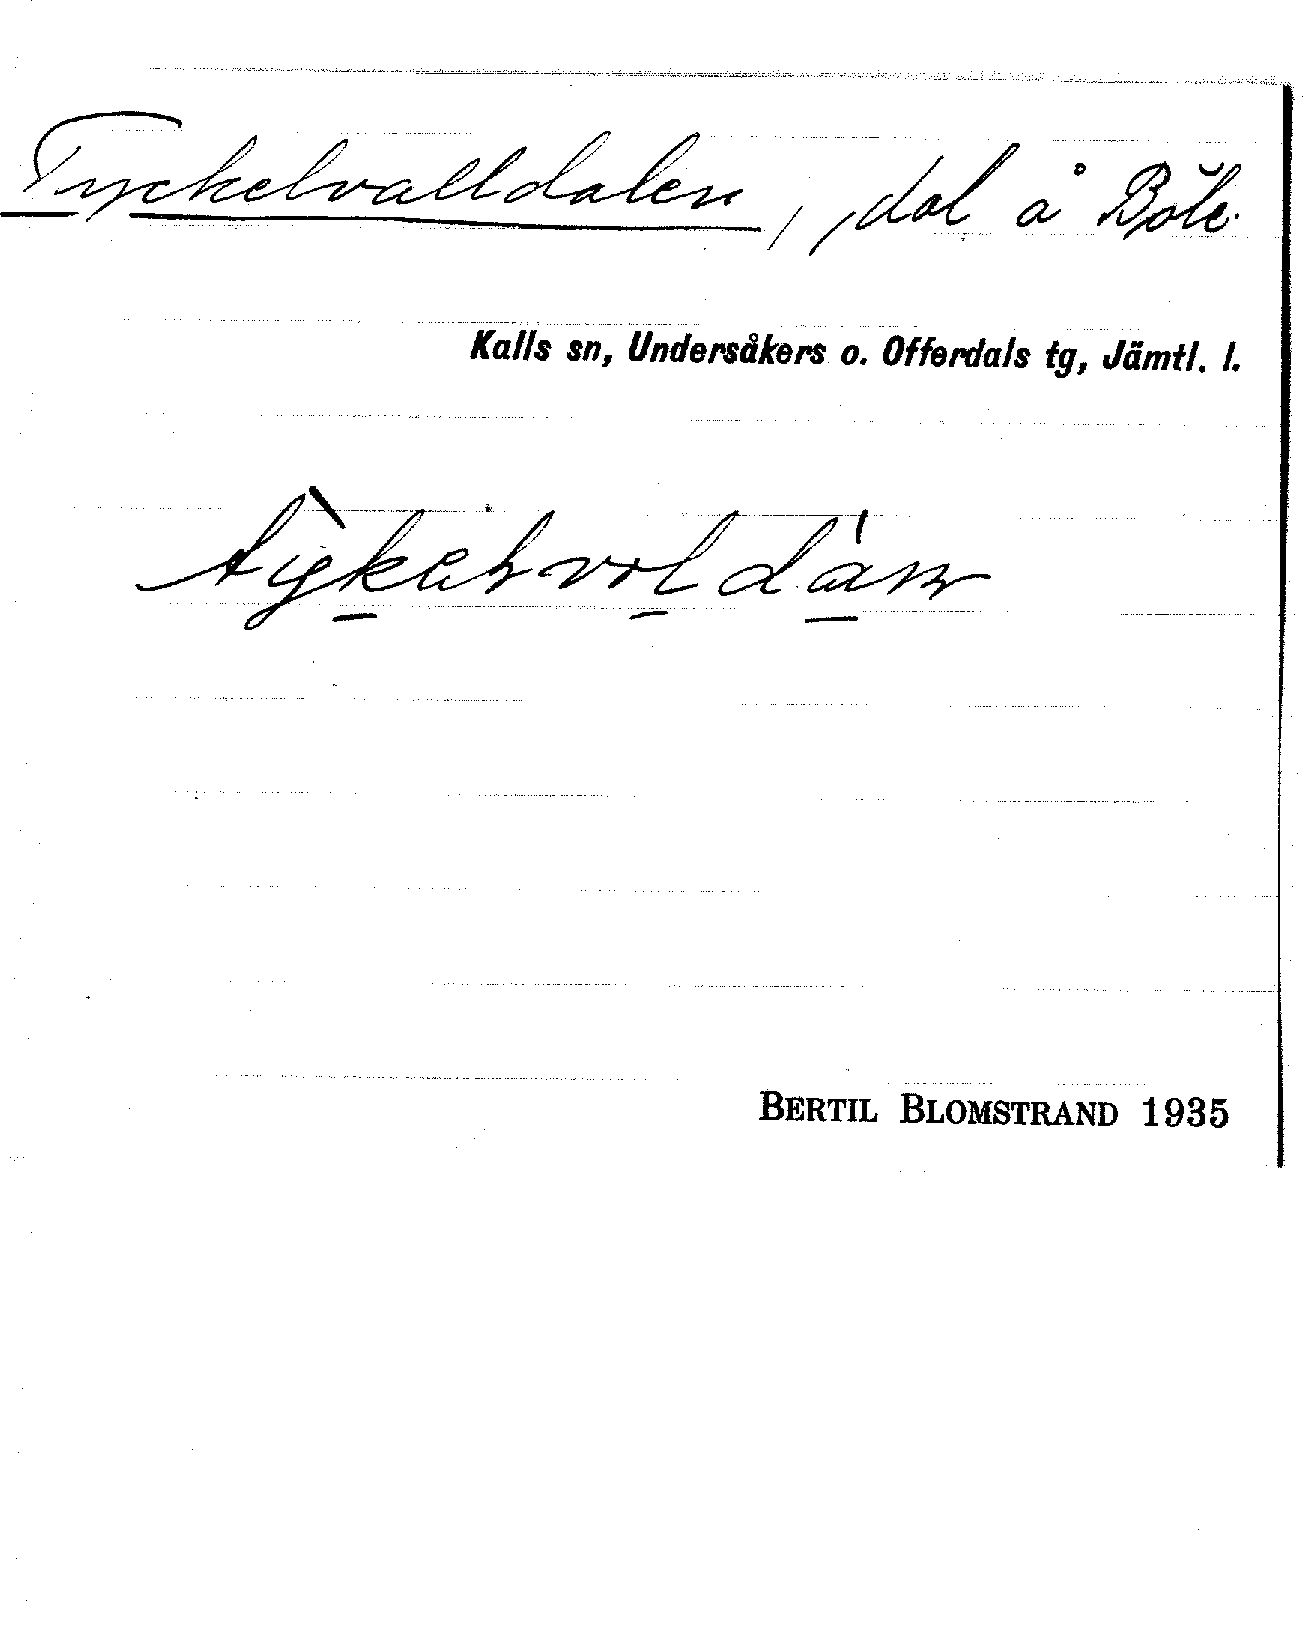 Tyckelvalldalen, dal å Böle.
Kalls sn, Undersåkers o. Offerdals tg, Jämtl. l.
BERTIL BLOMSTRAND 1935